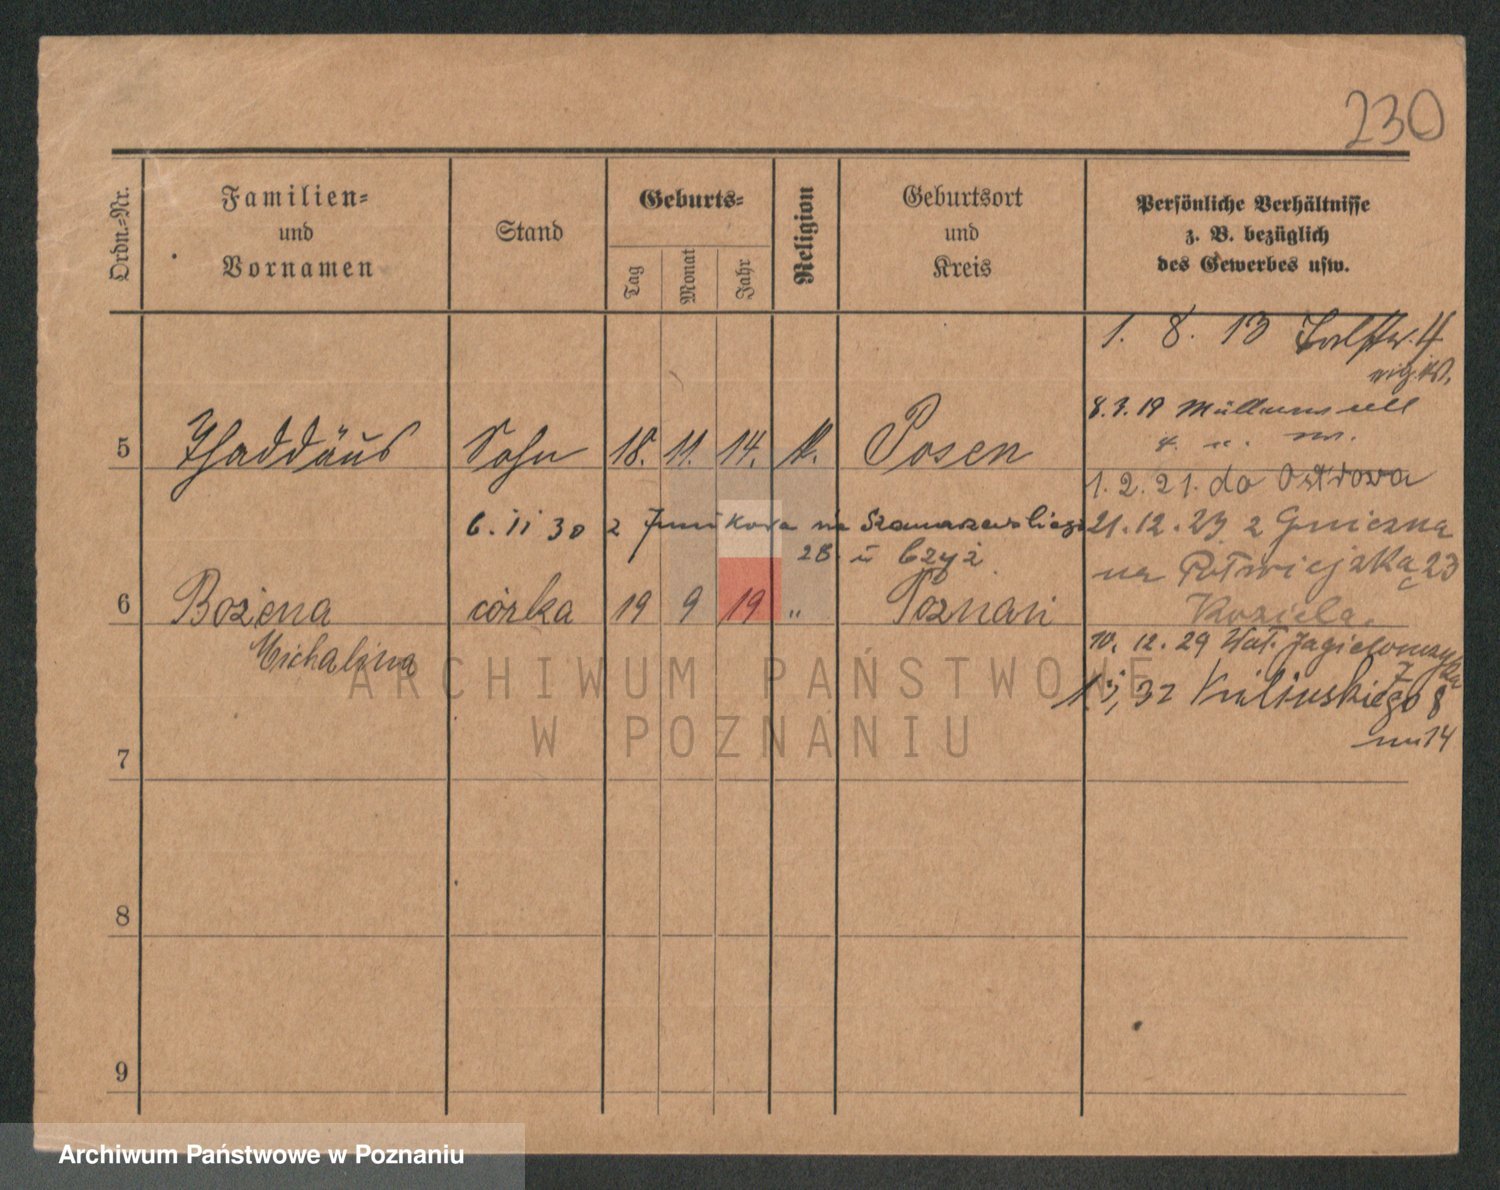 230
Ordn.-Nr.
Familien-
und
Vornamen
Stand
Geburts-
Tag
Monat
Jahr
Religion
Geburtsort
und
Kreis
Persönliche Verhältnisse
z. B. bezüglich
des Gewerbes usw.
1. 8. 13
8.3.19
5 Thaddäus Sohn 18. 11. 14. k. Posen
1.2.21. do Ostrowa
6.11 30 z Junikowa na Szamarzewskiego
28 u Czyż
21.12.23 z Gniezna
na Półwiejską 23
6 Bożena córka 19 9 19 " Poznań
Koziela.
Michalina
10. 12. 29 Wał. Jagiellończyka
7
32 Kilińskiego 8
m 14
7
8
9
ARCHIWUM PAŃSTWOWE
W POZNANIU
Archiwum Państwowe w Poznaniu